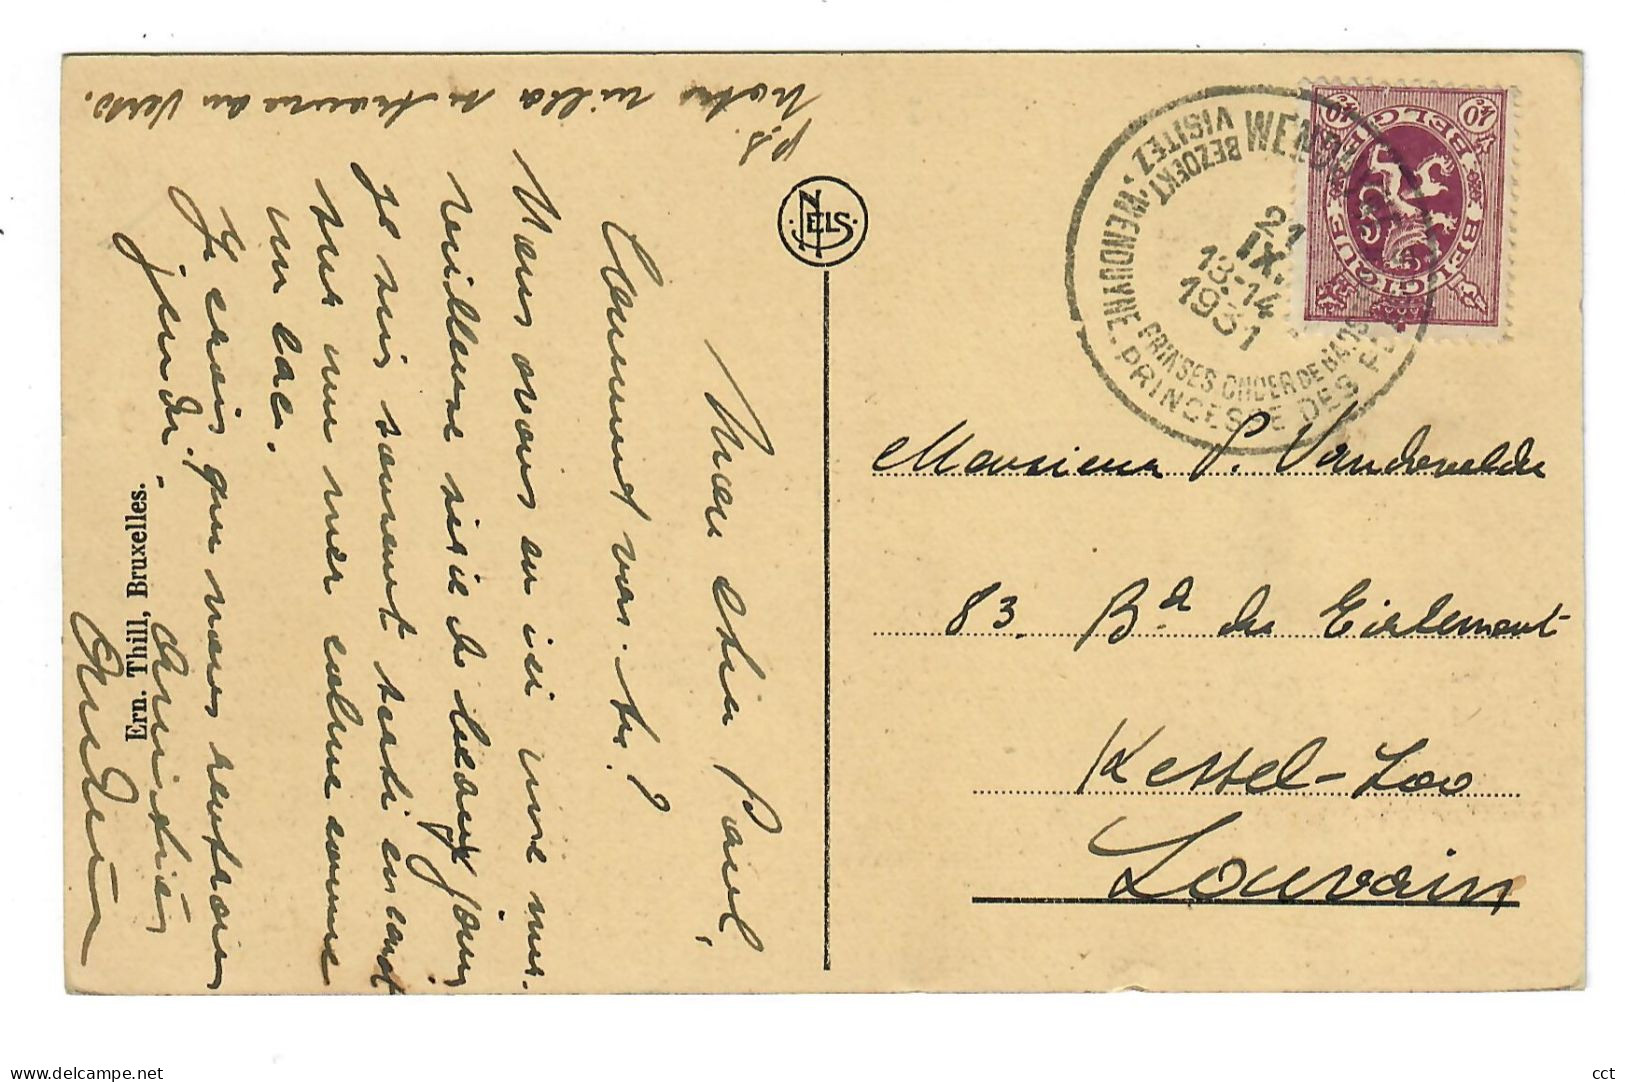 Mon cher Paul,
Comment vas-tu?
Nous avons eu ici une mer-
veilleuse série de beaux jours
Je suis souvent sorti en canot
sur une mer calme comme
un lac.
Je crois que nous rentrons
jeudi.
Amitiés
p.s.
Notre villa se trouve au verso.
NELS
Ern. Thill, Bruxelles.
BEZOEKT WENDUYNE PRINSES ONDER DE BADSTEDEN
VISITEZ WENDUYNE. PRINCESSE DES PLAGES
21
IX.
13-14
1931
BELGIQUE BELGIË
40c 40c
Monsieur P. Vandevelde
83. Bd de Tirlemont
Kessel-Loo
Louvain
cct